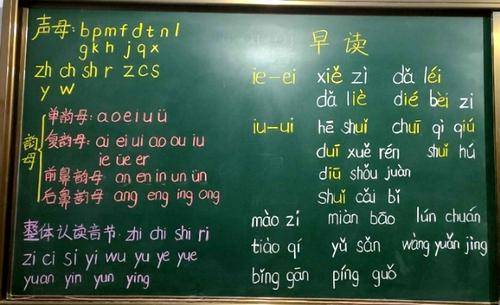 声母: b p m f d t n l
g k h j q x
zh ch sh r z c s
y w
韵母
单韵母: a o e i u ü
复韵母: ai ei ui ao ou iu
ie üe er
前鼻韵母 an en in un ün
后鼻韵母 ang eng ing ong
整体认读音节. zhi chi shi ri
zi ci si yi wu yu ye yue
yuan yin yun ying
早读
ie-ei xiě zì dǎ léi
dǎ liè dié bèi zi
iu-ui hē shuǐ chuī qì qiú
duī xuě rén shuǐ hú
diū shǒu juàn
shuǐ cǎi bǐ
mào zi miàn bāo lún chuán
tiào qí yǔ sǎn wàng yuǎn jìng
bǐng gān píng guǒ